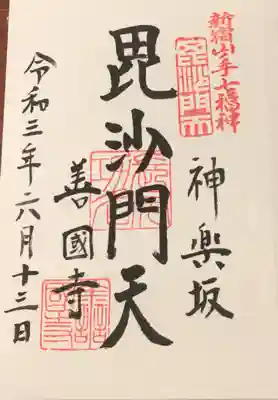 新宿山ノ手七福神
毘沙門天
神楽坂
毘沙門天
善國寺
令和三年六月十三日